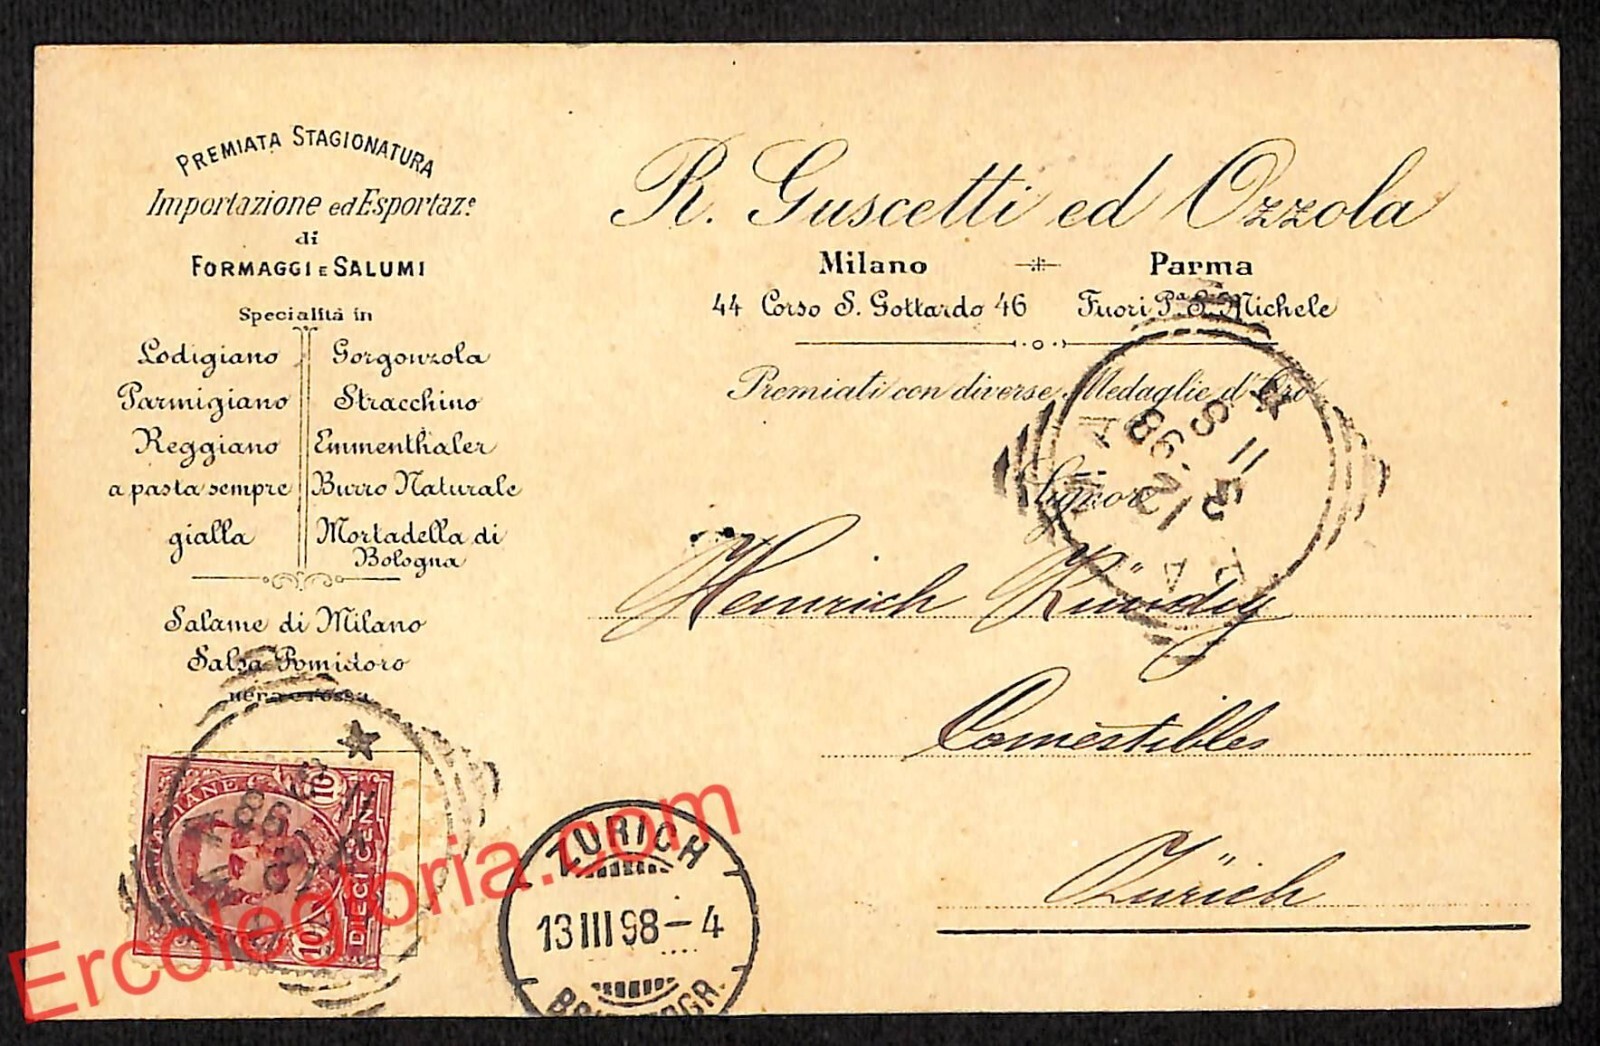 PREMIATA STAGIONATURA
Importazione ed Esportaz.e
di
FORMAGGI E SALUMI
Specialità in
Lodigiano
Parmigiano
Reggiano
a pasta sempre
gialla
Gorgonzola
Stracchino
Emmenthaler
Burro Naturale
Mortadella di
Bologna
Salame di Milano
Salsa Pomidoro
nera e rossa
R. Guscetti ed Ozzola
Milano
Parma
44 Corso S. Gottardo 46
Fuori Pa. S. Michele
Premiati con diverse Medaglie d'Oro
Signore
Heinrich Kündig
Comestibles
Zürich
12.3.98
11 S
10
DIECI CENT
10
ZÜRICH
13 III 98-4
Ercolegloria.com